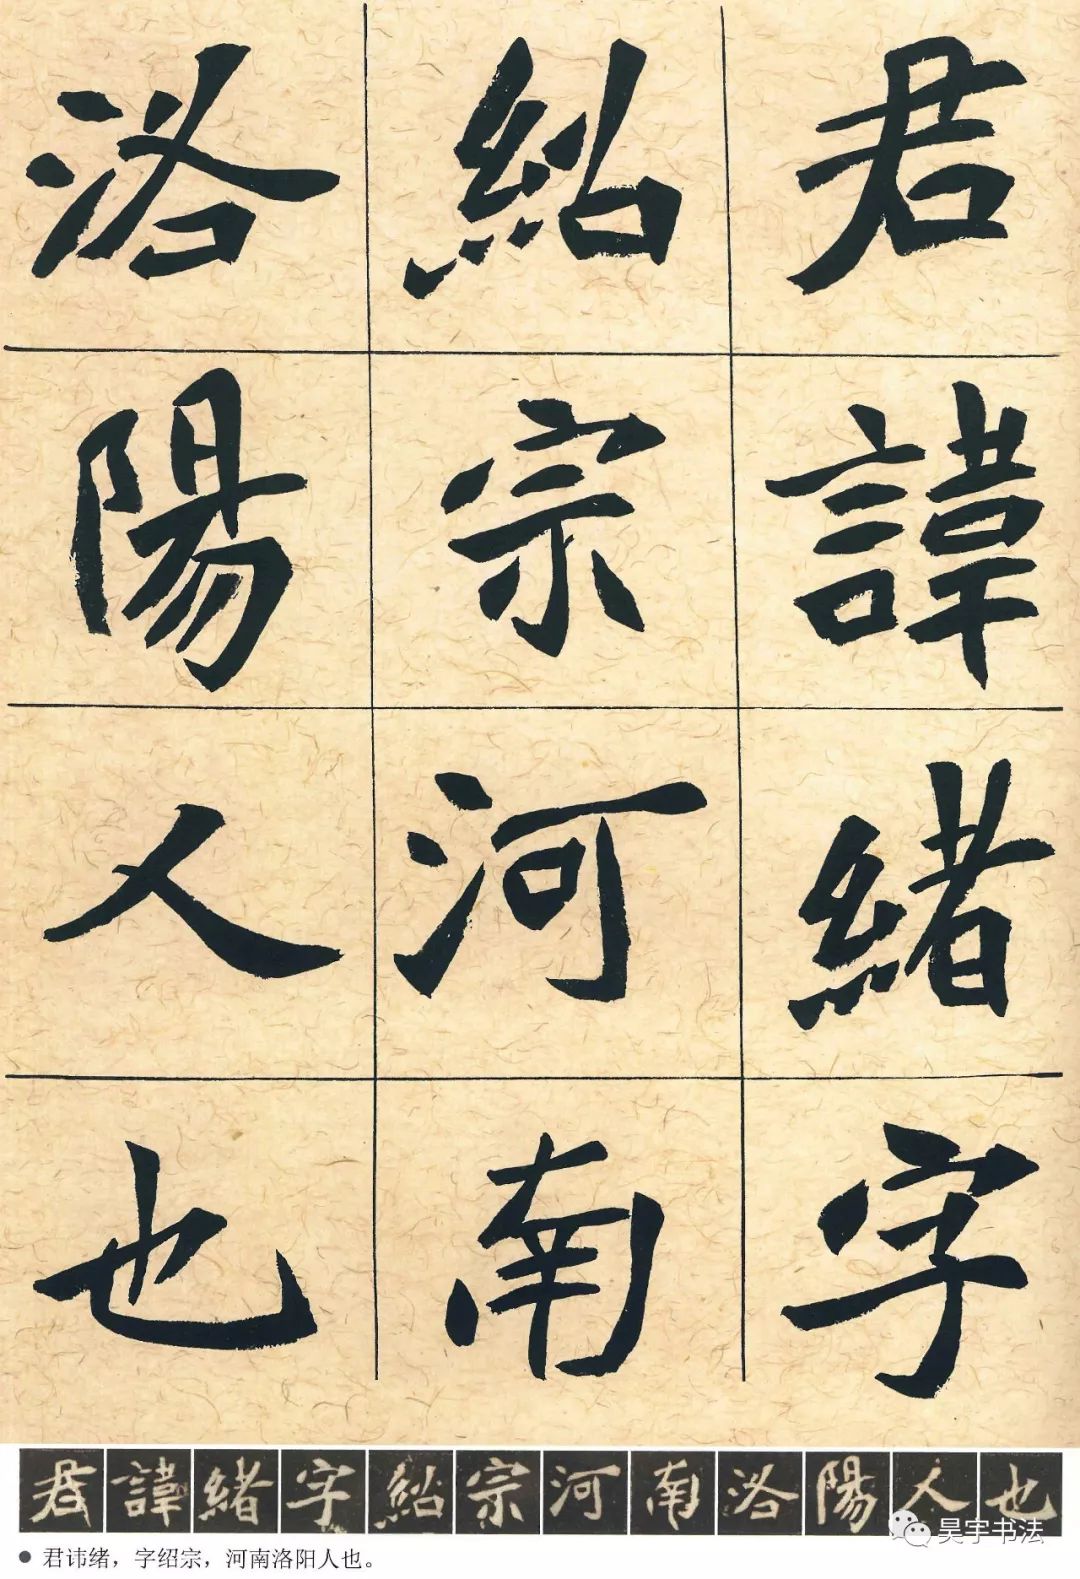 君諱緒字
紹宗河南
洛陽人也
君諱緒字紹宗河南洛陽人也
昊宇书法
● 君讳绪，字绍宗，河南洛阳人也。